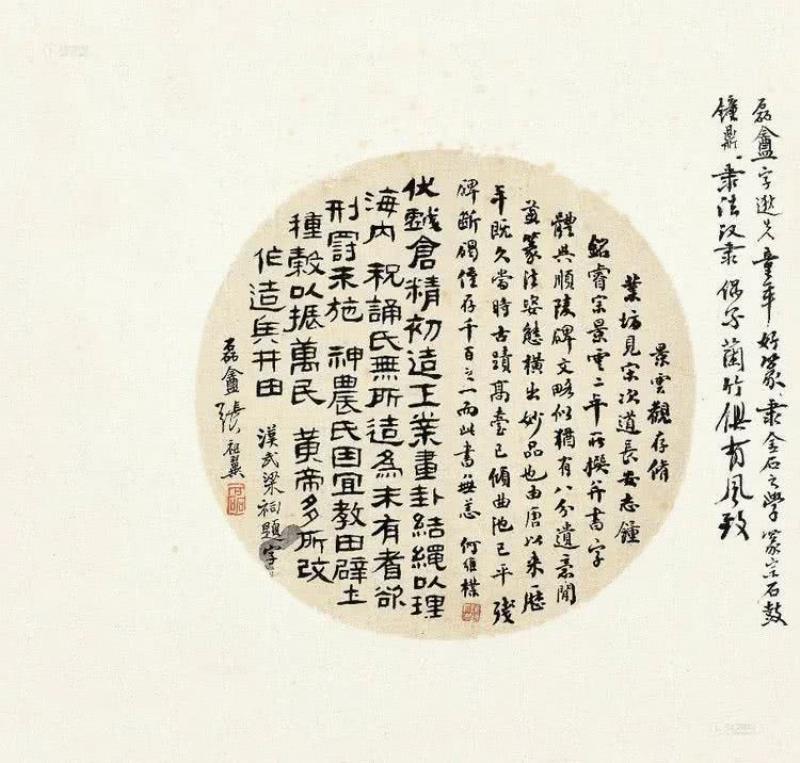 磊盦字逖先童年好篆隶金石之學篆宗石鼓
鐘鼎隶法漢隶偶写蘭竹俱有風致
景雲觀存脩
業坊見宋次道長安志鐘
銘睿宗景雲二年所撰并書字
體與順陵碑文略似猶有八分遺意間
兼篆法姿態橫出妙品也由唐以來歷
年既久當時古蹟高臺已傾曲池已平殘
碑斷碣僅存千百之一而此書無恙 何維樸
伏戲倉精初造王業畫卦結繩以理
海内 祝誦氏無所造為未有耆欲
刑罰未施 神農氏因宜教田辟土
種穀以振萬民 黃帝多所改
作造兵井田 漢武梁祠題字
磊盦張祖翼